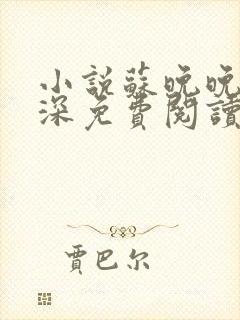 小說蘇晚晚
深免費閱讀
賈巴尔